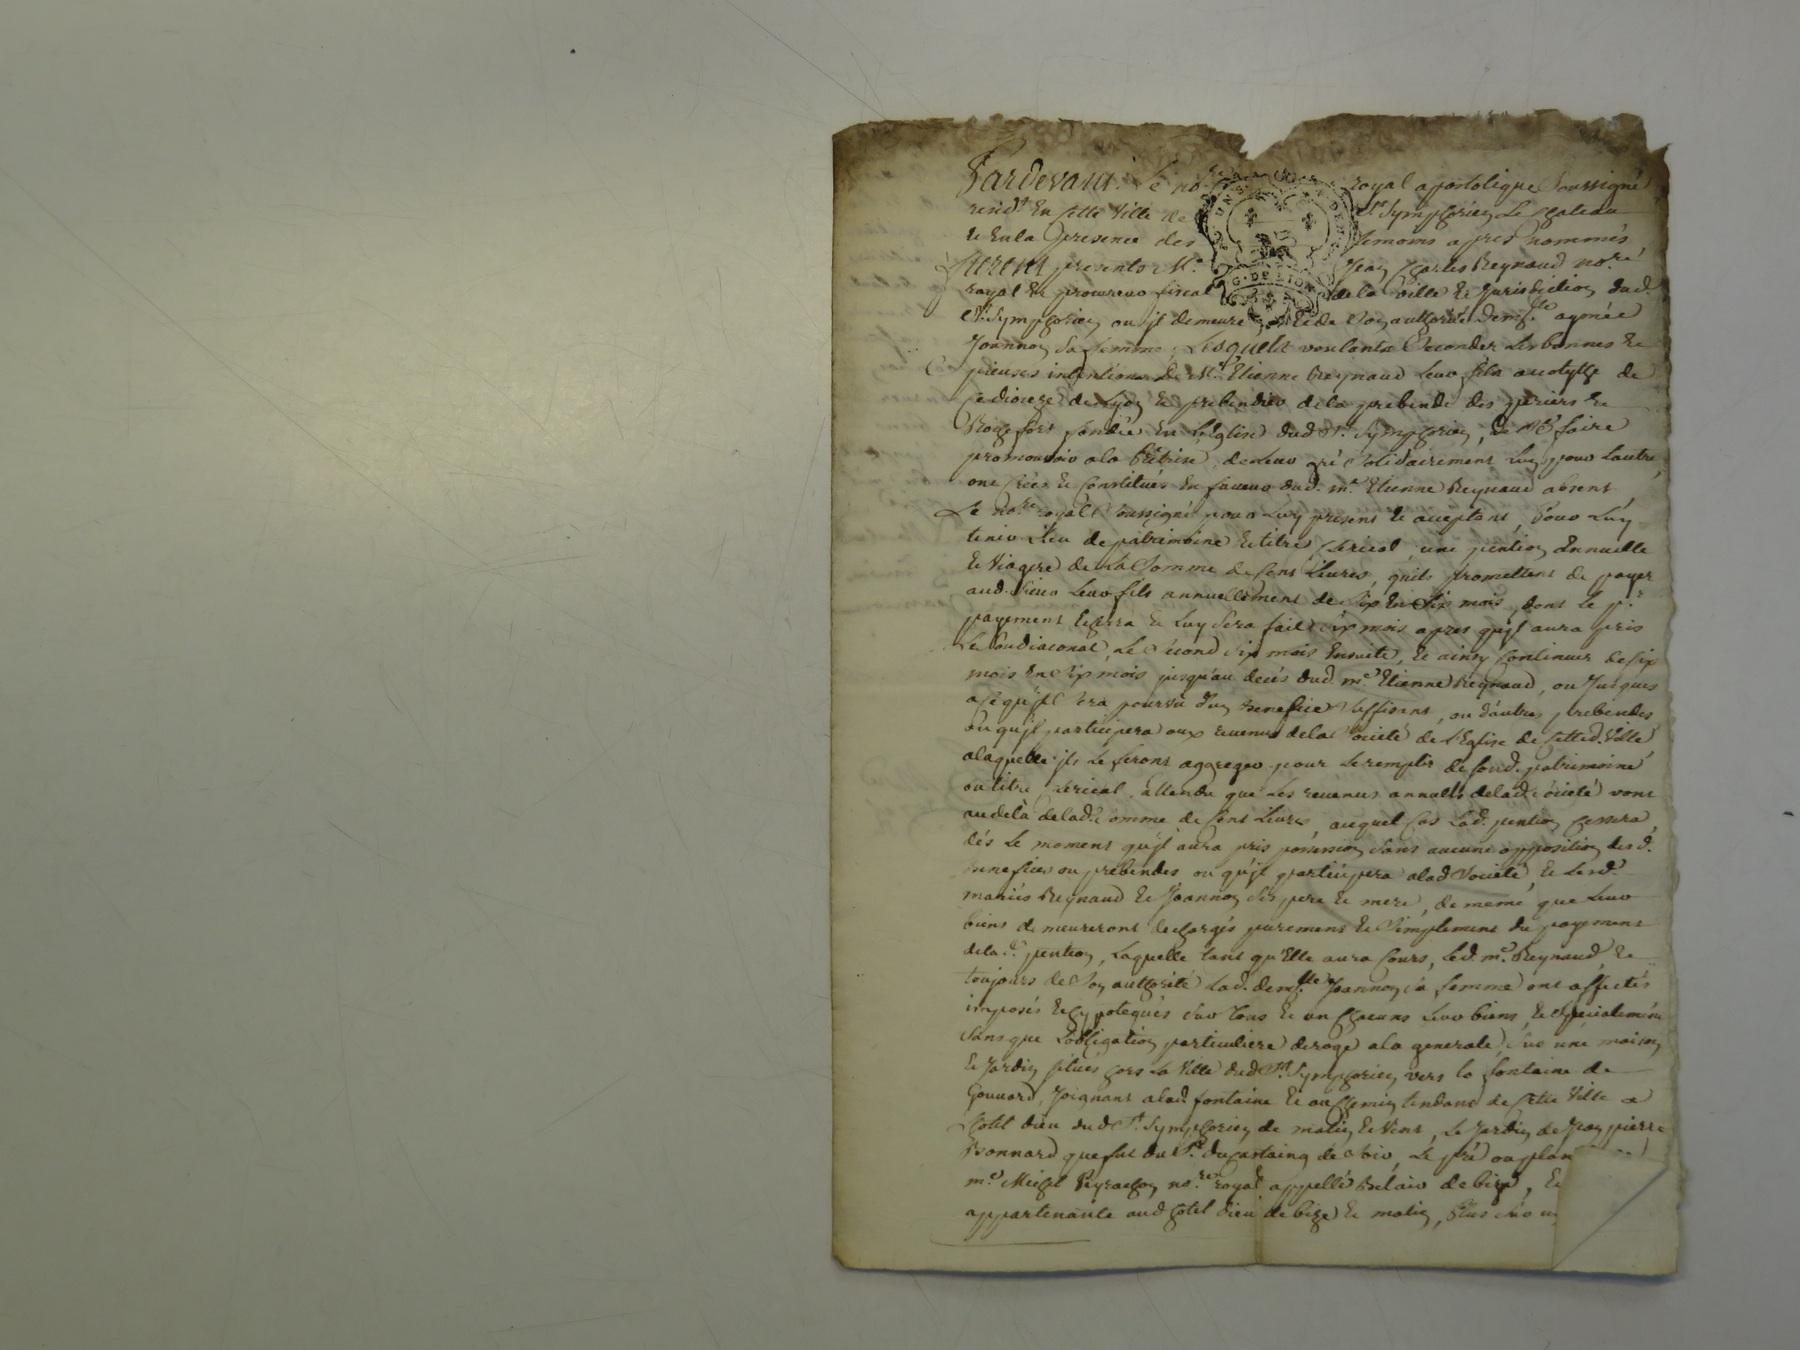 Pardevant Le no.re royal apostolique soussigné
resid.t En cette Ville de S.t Symphorien Le chateau
Et En la presence des temoins apres nommés,
furent presents M.e Jean Charles Reynaud no.re
royal Et procureur fiscal de la Ville Et Jurisdiction dud.
S.t Symphorien ou jl demeure Et de Son authorité dem.lle agnée
Joannon Sa femme, Lesquels voulants Seconder Les bonnes Et
pieuses intentions de M.e Etienne Reynaud Leur fils acolythe de
ce dioceze de Lyon Et prebendier de la prebende des periers Et
Rochefort fondée En L'Eglise dud. S.t Symphorien, de Se faire
promouvoir a la Pretrise, de Leur gré Solidairement L'un pour L'autre,
ont Créés Et Constitués En faveur dud. m.e Etienne Reynaud absent,
Le no.re royal Soussigné pour Luy present Et aceptant, Pour Luy
tenir Lieu de patrimoine Et titre Clerical, une pention Annuelle
Et Viagere de La Somme de Cent Livres, quils promettent de payer
aud. Sieur Leur fils annuellement de Six En Six mois, dont Le p.r
payement Echerra Et Luy Sera fait Six mois apres qu'jl aura pris
Le Soudiaconat, Le Second Six mois Ensuite, Et ainsy Continuer de Six
mois En Six mois jusqu'au decés dud. m.e Etienne Reynaud, ou Jusques
a Ce qu'jl Sera pourvu d'un Benefice Suffisent, ou d'autres prebendes
ou qu'jl participera aux revenus de la Societé de L'Eglise de Cette d. Ville
a laquelle jls Le feront aggreger pour Le remplir de Sond. patrimoine
ou titre Clerical, attendu que Les revenus annuels de lad. Societé vont
au dela de lad. Somme de Cent Livres, auquel Cas Lad. pention Cessera,
dés Le moment qu'jl aura pris possession Sans aucune opposition desd.
Benefices ou prebendes ou qu'jl participera a lad. Societé, Et Lesd.
mariés Reynaud Et Joannon Ses pere Et mere, de meme que Leur
biens demeureront dechargés purement Et Simplement du payement
de la d. pention, Laquelle tant qu'Elle aura Cours, Led. m.e Reynaud, Et
toujours de Son authorité Lad. dem.lle Joannon Sa femme ont affectés
imposés Et hypotequés Sur Tous Et un Chacuns Leur biens, Et Specialement
Sans que L'obligation particuliere deroge a la generale, Sur une maison
Et Jardin Situés hors La Ville dud. S.t Symphorien vers la fontaine de
Gouvard, Joignant a lad. fontaine Et au Chemin tendant de Cette Ville a
Lhotel dieu dud. S.t Symphorien de matin Et Vent, Le Jardin de Jean pierre
Bonnard que fut du S.r de Soir, Le pré ou
m.e Michel Peyrachon no.re royal appellé Belair de bize, Et
appartenante aud. hotel dieu de bize Et matin, Plus Sur